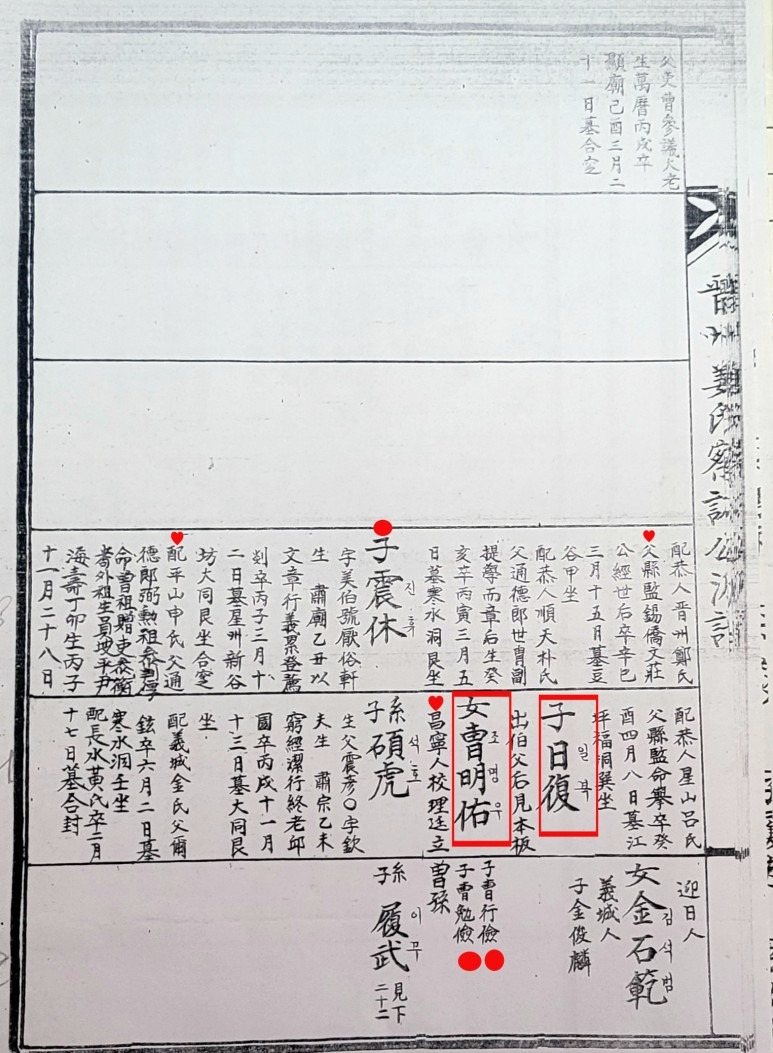 父吏曹參議大老
生萬曆丙戌卒
顯廟己酉三月二
十一日墓合窆
晉州姜氏
配恭人晋州鄭氏
父縣監錫僑文莊
公經世后卒辛巳
三月十五日墓豆
谷甲坐
配恭人順天朴氏
父通德郎世胄副
提學而章后生癸
亥卒丙寅三月五
日墓寒水洞艮坐
子震休
진휴
字美伯號厭俗軒
生 肅廟乙丑以
文章行義累登薦
剡卒丙子三月十
二日墓星州新谷
坊大同艮坐合窆
配平山申氏父通
德郎弼勲祖參判厚
命曾祖贈吏參
外祖生員坡平尹
海壽丁卯生丙子
十一月二十八日
配恭人星山呂氏
父縣監命擧卒癸
酉四月八日墓江
坪福洞巽坐
子日復
일복
出伯父后見本板
女曺明佑
조명우
昌寧人校理廷立
曾孫
孫子碩虎
석호
生父震彥○字欽
夫生 肅宗乙未
窮經潔行終老邱
園卒丙戌十一月
十三日墓大同艮
坐
配義城金氏父爾
鉉卒六月二日墓
寒水洞壬坐
配長水黃氏卒二月
十七日墓合封
迎日人
女金石範
김석범
義城人
子金俊麟
子曺行儉
子曺勉儉
孫子履武
이무
見下
二十二